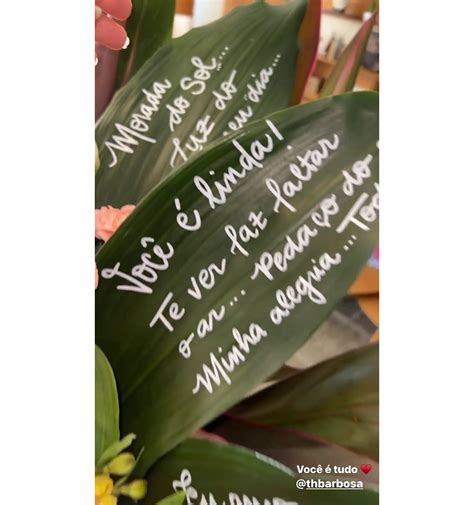 Morada
do Sol...
Luz do
meu dia...
Você é linda!
Te ver faz faltar
o ar... Pedaço do
Minha alegria...
Você é tudo ❤️
@thbarbosa